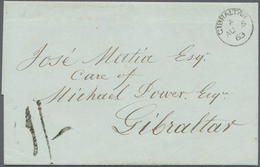 GIBRALTAR
A
AU 5
63
José Matia Esqr
Care of
Michael Power Esqr
Gibraltar
1/-